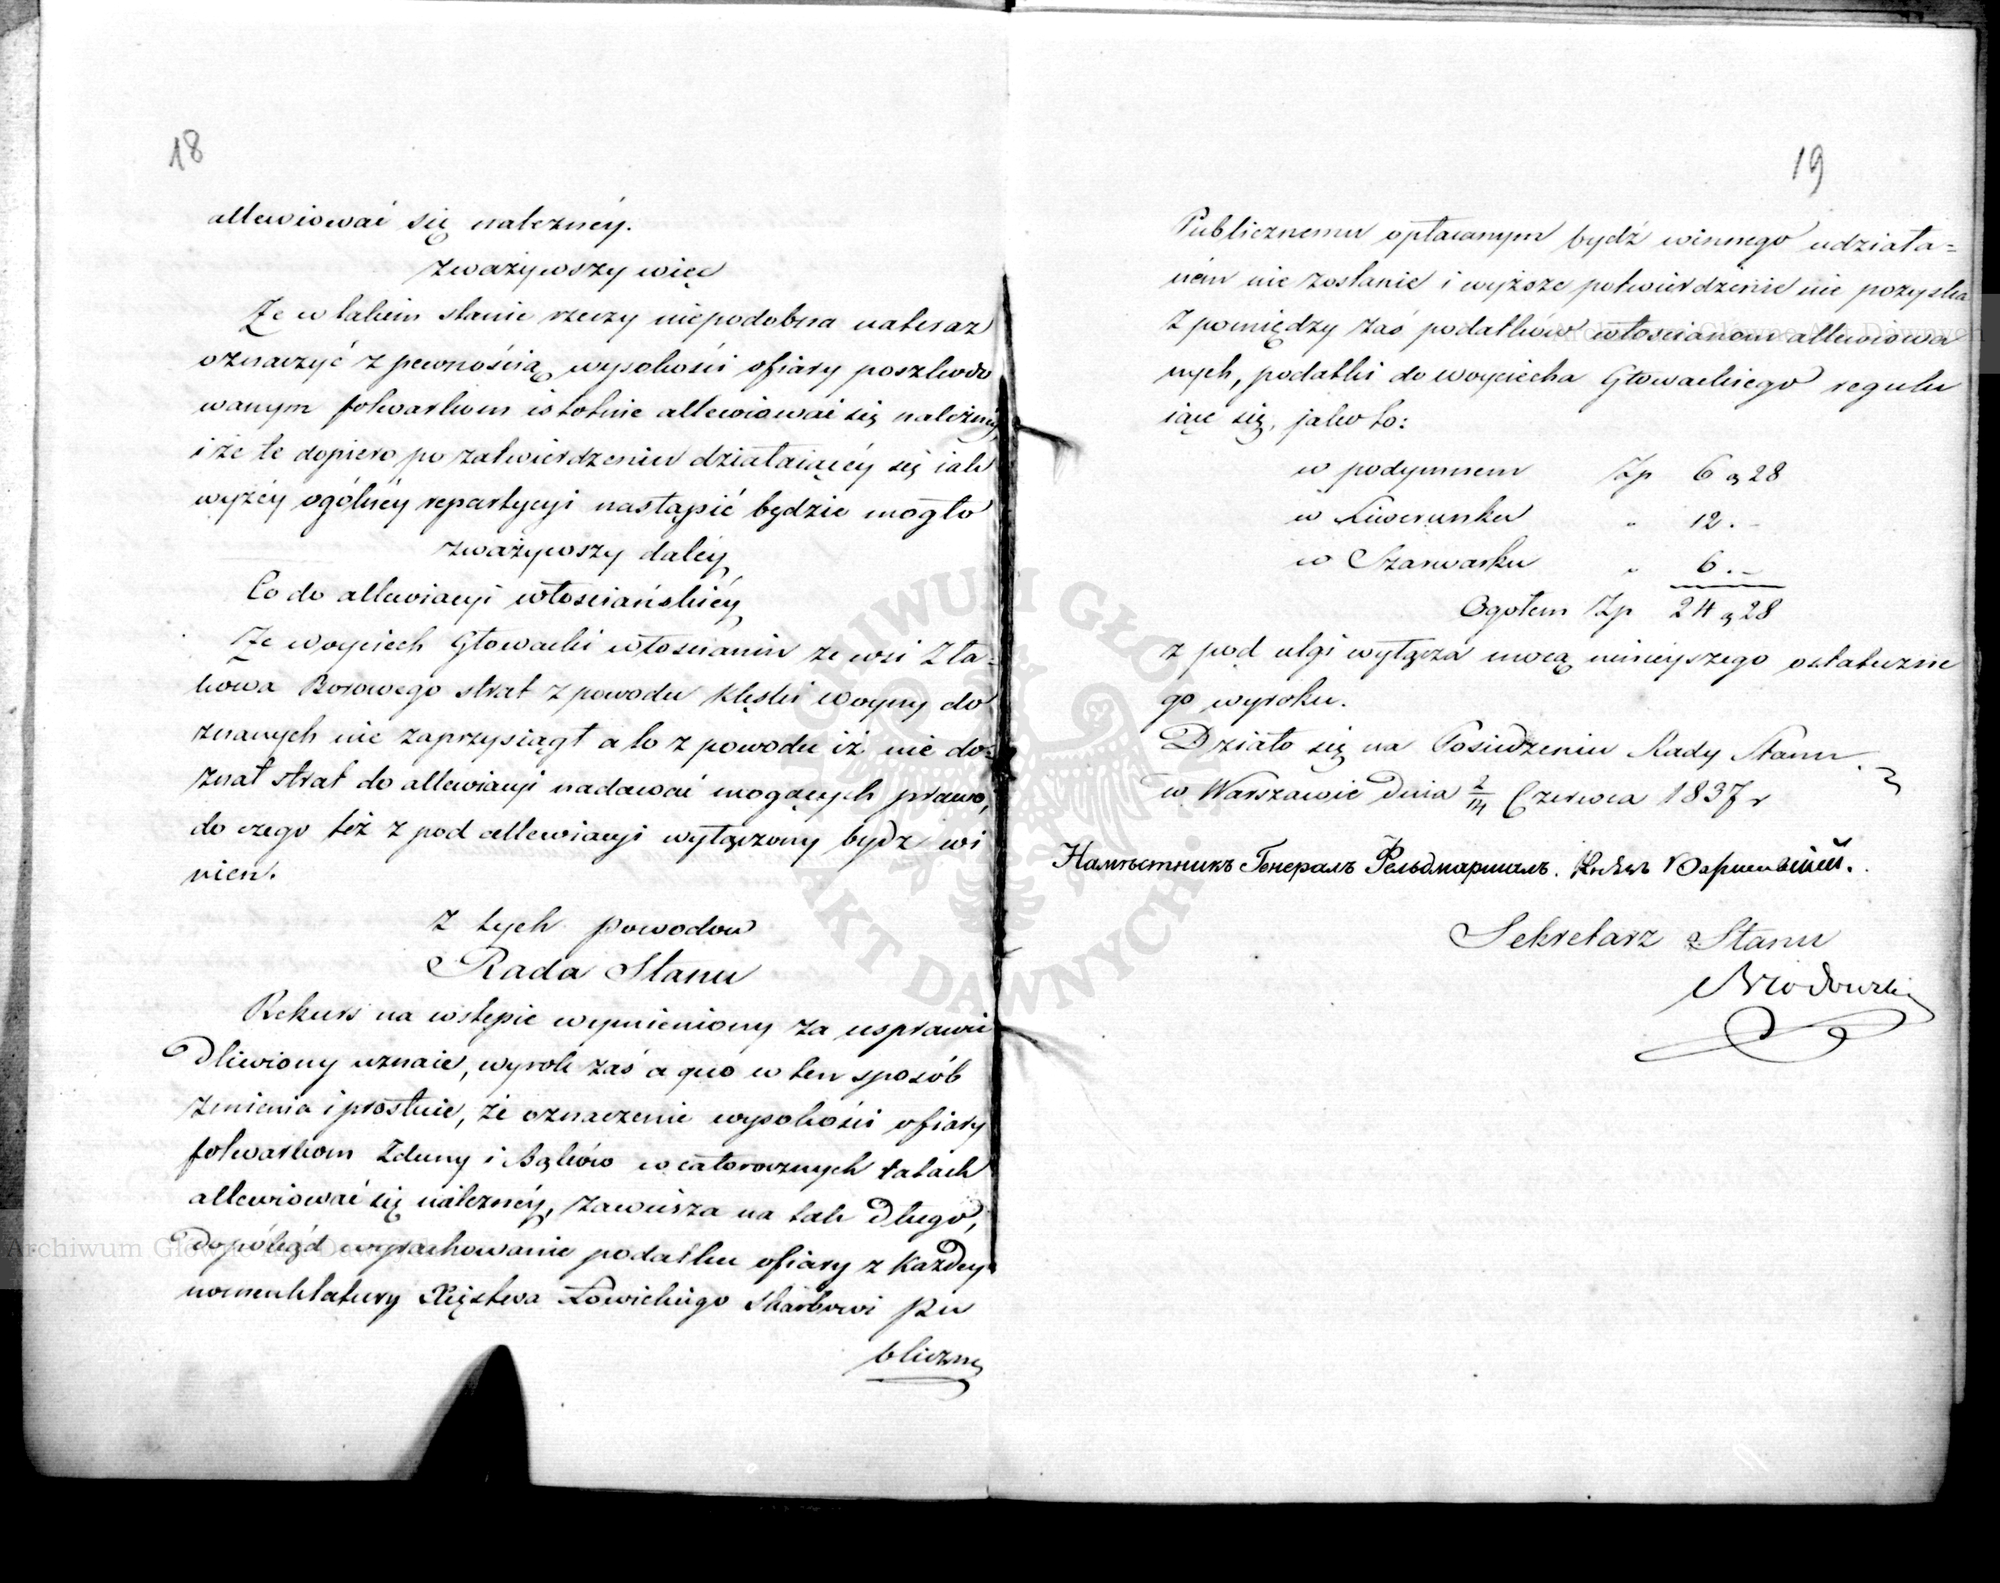 18
allewiować się należnéy.
zważywszy więc
Że w takim stanie rzeczy niepodobna nateraz
oznaczyć z pewnością wysokości ofiary poszkodo
wanym folwarkom istotnie allewiować się należnéy,
i że te dopiero po zatwierdzeniu działaiącéy się iak
wyżéy ogólnéy repartycyi nastąpić będzie mogło
zważywszy daléy
Co do allewiacyi włościańskiéy
Że Woyciech Głowacki włościanin ze wsi Zła-
kowa Borowego strat z powodu klęski woyny do
znanych nie zaprzysiągł a to z powodu iż nie do-
znał strat do allewiacyi nadawać mogących prawo,
do czego też z pod allewiacyi wyłączony bydź wi
nien.
Z tych powodów
Rada Stanu
Rekurs na wstępie wymieniony za usprawie
dliwiony uznaie, wyrok zaś a quo w ten sposób
zmienia i prostuie, że oznaczenie wysokości ofiary
folwarkom Zduny i Bąków w całorocznych ratach
allewiować się należnéy, zawiesza na tak długo,
dopókąd wyrachowanie podatku ofiary z każdéy
nomenklatury Xięstwa Łowickiego Skarbowi Pu
bliczne
19
Publicznemu opłacanym bydź winnego udziała=
niem nie zostanie i wyższe potwierdzenie nie pozyska
Z pomiędzy zaś podatków włościanom allewiowa
nych, podatki do Woyciecha Głowackiego regulu
iące się, jako to:
w podymnem Zp 6 g 28
w Liwerunku " 12. -
w Szarwarku " 6. -
Ogółem Zp 24 g 28
z pod ulgi wyłącza mocą ninieyszego ostateczne
go wyroku.
Działo się na Posiedzeniu Rady Stanu
w Warszawie Dnia 2/14 Czerwca 1837 r
Намѣстникъ Генералъ Фельдмаршалъ. Князь Варшавскій.
Sekretarz Stanu
Archiwum Główne Akt Dawnych
Archiwum Główne Akt Dawnych
ARCHIWUM GŁÓWNE AKT DAWNYCH